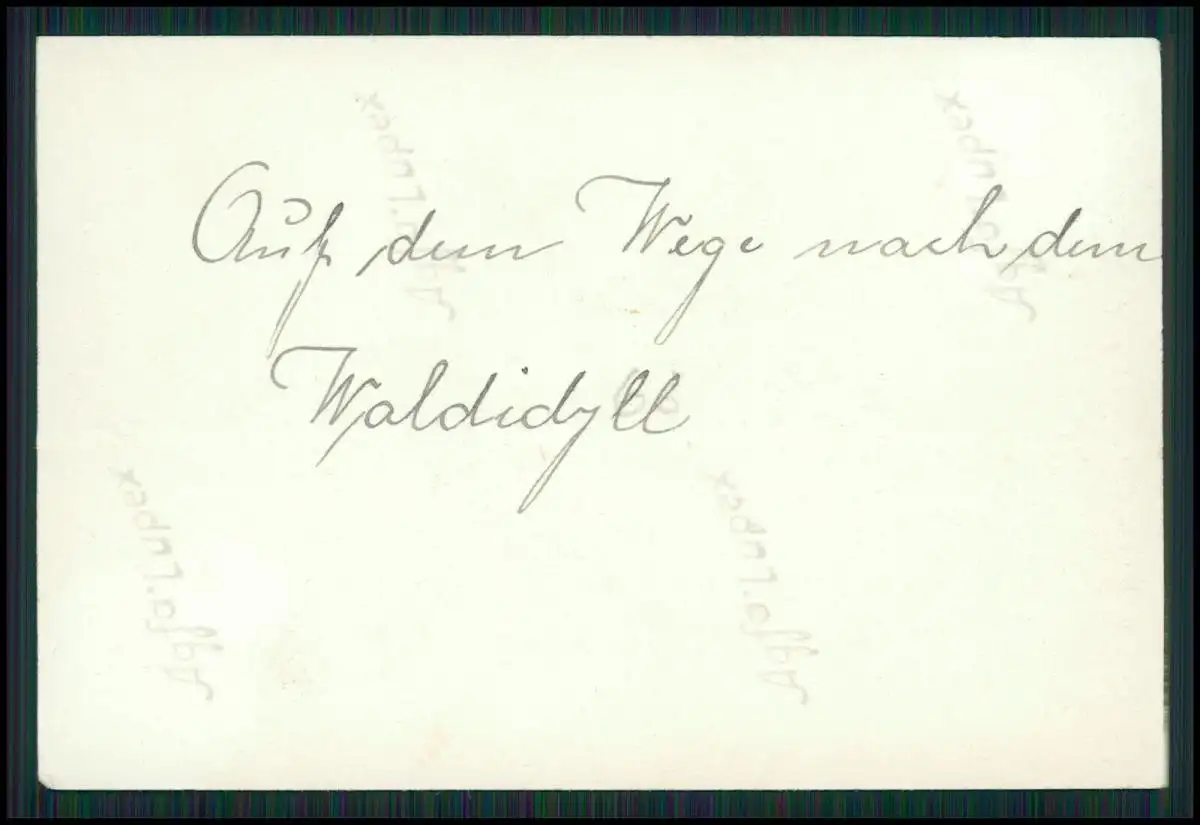 Auf dem Wege nach dem
Waldidyll
Agfa-Lupex
Agfa-Lupex
Agfa-Lupex
Agfa-Lupex